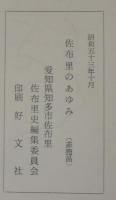 昭和五十三年十月
佐布里のあゆみ
(非売品)
愛知県知多市佐布里
佐布里史編集委員会
印刷 好文社